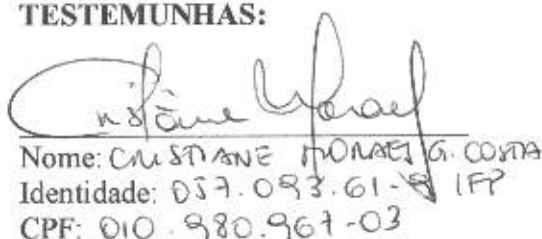 TESTEMUNHAS:
Cristiane Moraes
Nome: CRISTIANE MORAES G. COSTA
Identidade: 057.093.61-9 IFP
CPF: 010.980.967-03